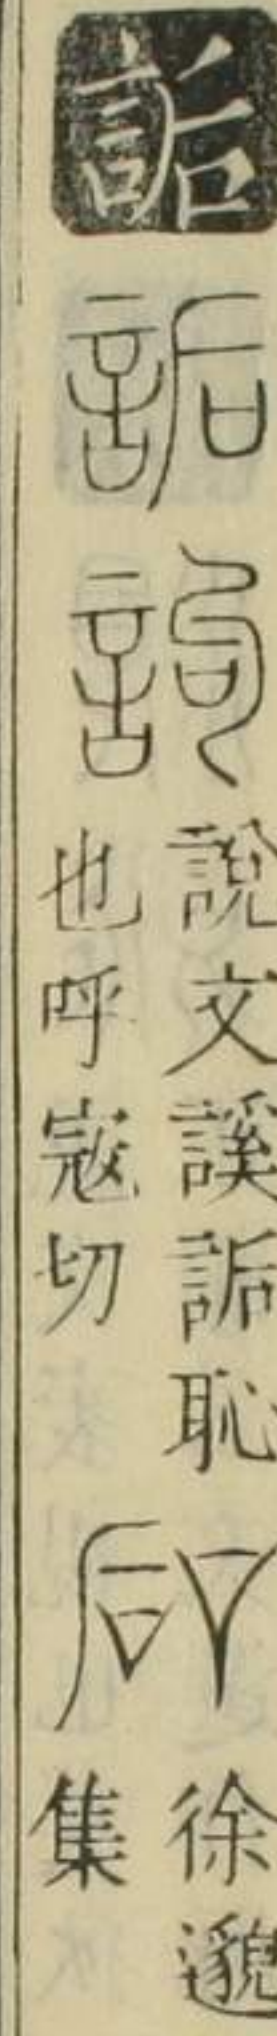 詬
詬
詢
說文謑詬恥
也呼寇切
徐邈
集